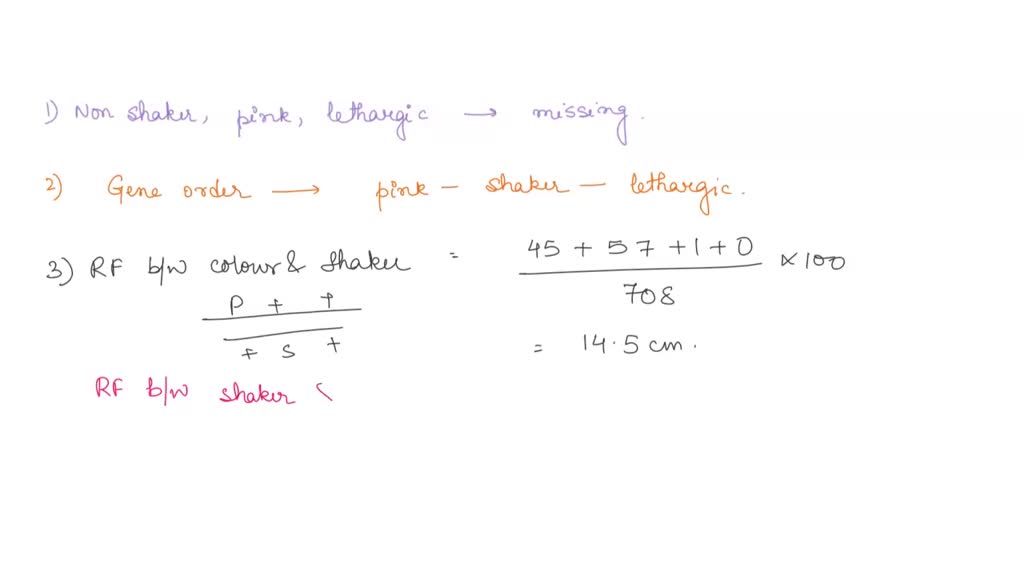 1) Non shaker, pink, lethargic → missing.
2) Gene order → pink - shaker - lethargic.
3) RF b/w colour & shaker = 45 + 57 + 1 + 0 / 708 × 100
P + +
+ S +
= 14.5 cm.
RF b/w shaker (